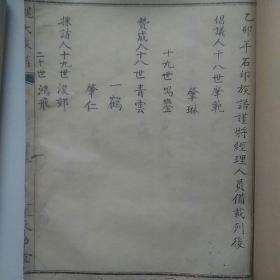 乙卯年石印族譜謹將經理人員備裁列後
倡議人十八世肇範
肇琳
十九世鳴鑾
贊成人十八世青雲
一鶴
肇仁
採訪人十九世浚鄴
二十世鴻飛